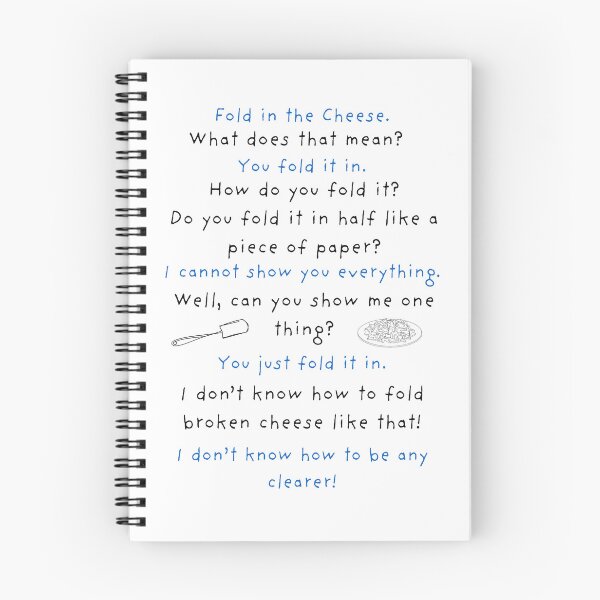 Fold in the Cheese.
What does that mean?
You fold it in.
How do you fold it?
Do you fold it in half like a
piece of paper?
I cannot show you everything.
Well, can you show me one
thing?
You just fold it in.
I don't know how to fold
broken cheese like that!
I don't know how to be any
clearer!